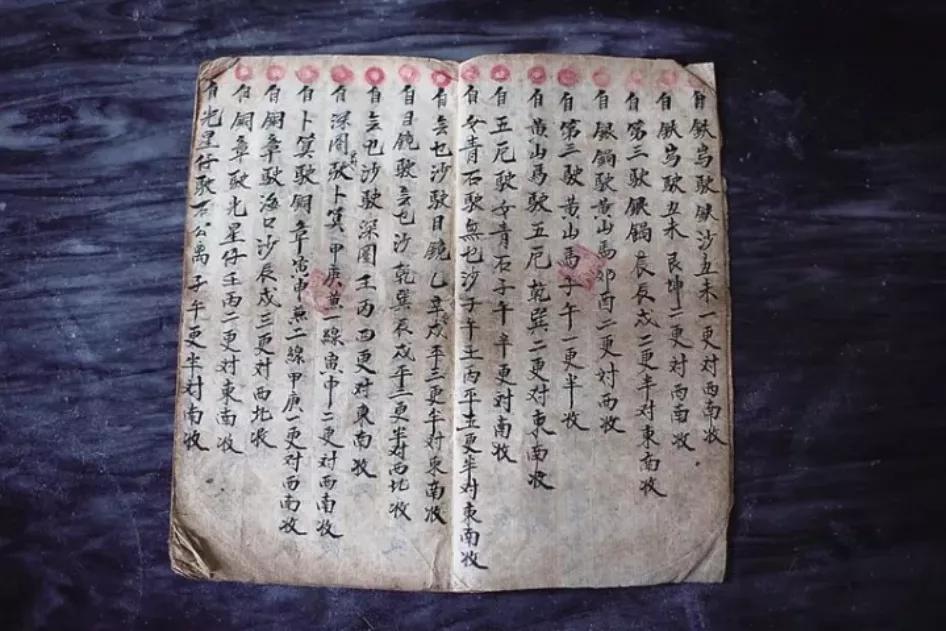 自鉄峙駛鉄沙丑未一更对西南收
自鉄峙駛丑未艮坤二更对西南收
自第三駛銀鍋辰戌二更半对東南收
自銀鍋駛黄山馬卯酉二更对西收
自第三駛黄山馬子午一更半收
自黄山馬駛五風乾巽二更对東南收
自五風駛女青石子午半更对南收
自女青石駛無乜沙子午壬丙平五更半对東南收
自無乜沙駛目鏡乙辛戌平三更半对東南收
自目鏡駛無乜沙乾巽辰戌平三更半对西北收
自無乜沙駛深圈壬丙四更对東南收
自深圈駛卜英甲庚兼一線寅申二更对西南收
自卜英駛銅章寅申兼二線甲庚一更对西南收
自銅章駛海口沙辰戌三更对西北收
自銅章駛光星仔壬丙二更对東南收
自光星仔駛石公厘子午更半对南收